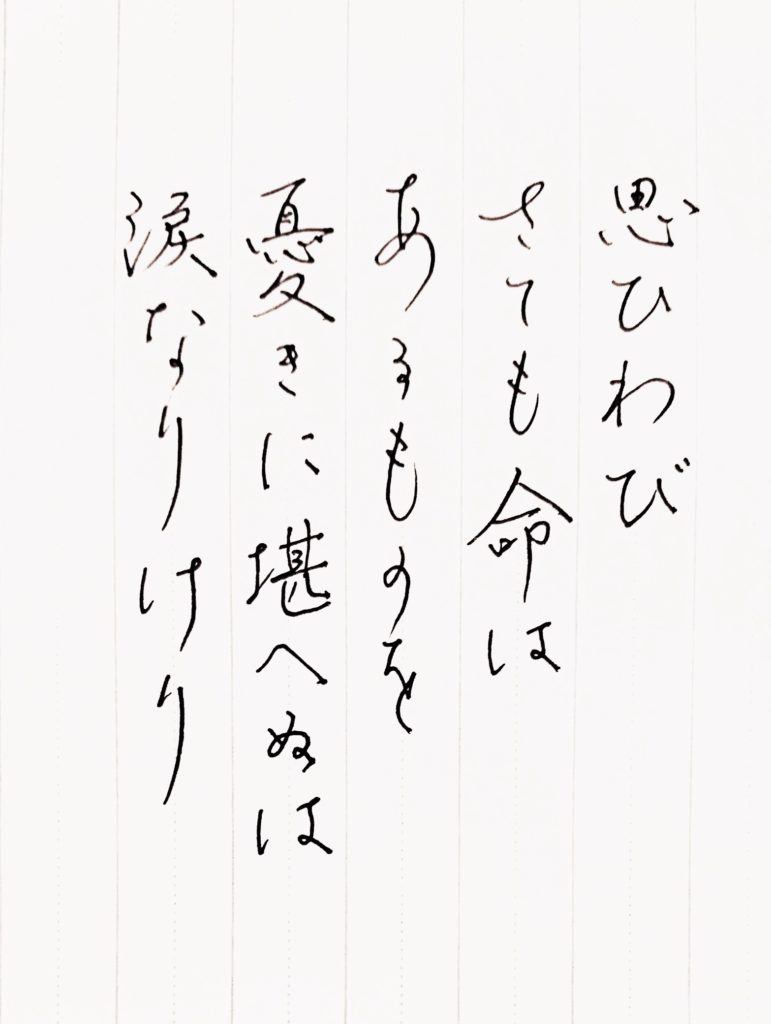 思ひわび
さても命は
あるものを
憂きに堪へぬは
涙なりけり